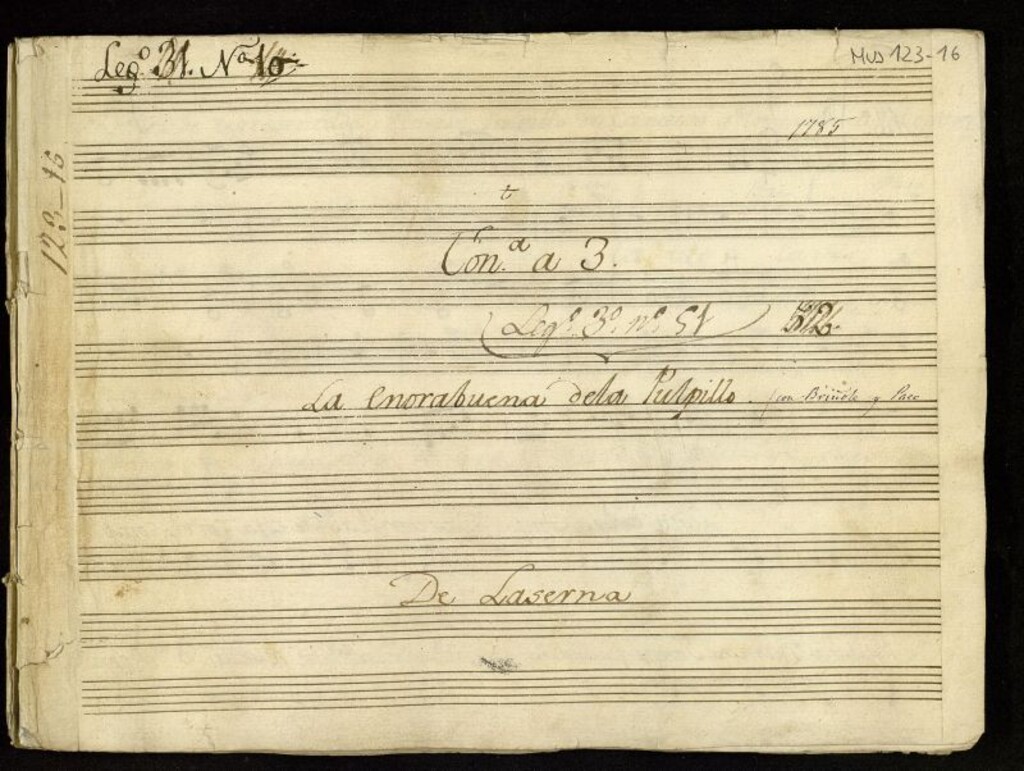 Leg.º 31. N.º 16
MUS 123-16
1785
123-16
t
Ton.ª a 3.
Leg.º 3.º n.º 51
La enorabuena dela Pulpillo. con Briñole y Paco
De Laserna